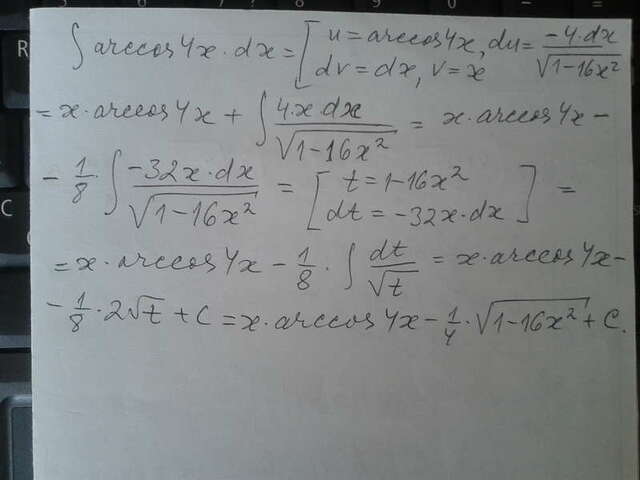 ∫ arccos4x·dx = [ u = arccos4x, du = -4·dx/√(1-16x²)
dv = dx, v = x
= x·arccos4x + ∫ 4·x·dx/√(1-16x²) = x·arccos4x -
- 1/8 · ∫ -32x·dx/√(1-16x²) = [ t = 1-16x²
dt = -32x·dx ] =
= x·arccos4x - 1/8 · ∫ dt/√t = x·arccos4x -
- 1/8 · 2√t + C = x·arccos4x - 1/4 · √(1-16x²) + C.
C